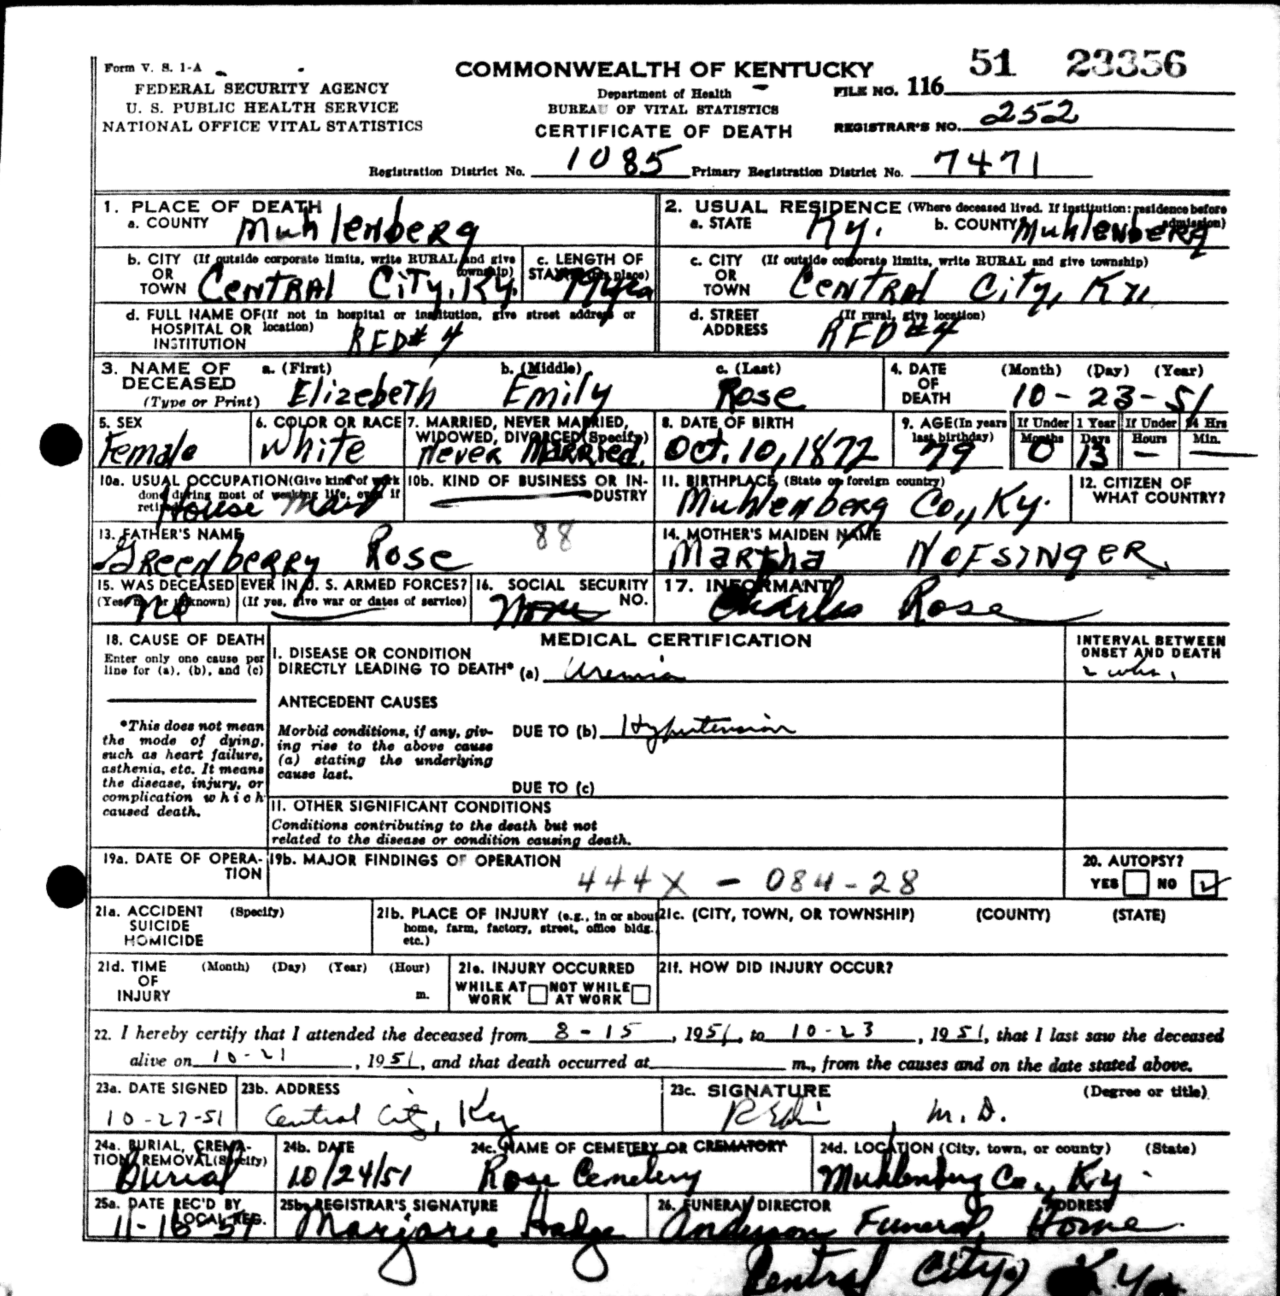 Form V. S. 1-A
FEDERAL SECURITY AGENCY
U. S. PUBLIC HEALTH SERVICE
NATIONAL OFFICE VITAL STATISTICS
COMMONWEALTH OF KENTUCKY
Department of Health
BUREAU OF VITAL STATISTICS
CERTIFICATE OF DEATH
51 23356
FILE NO. 116
REGISTRAR'S NO. 252
Registration District No. 1085 Primary Registration District No. 7471
1. PLACE OF DEATH
a. COUNTY Muhlenberg
2. USUAL RESIDENCE (Where deceased lived. If institution: residence before admission)
a. STATE Ky. b. COUNTY Muhlenberg
b. CITY (If outside corporate limits, write RURAL and give township)
OR
TOWN Central City, Ky.
c. LENGTH OF
STAY (in this place)
c. CITY (If outside corporate limits, write RURAL and give township)
OR
TOWN Central City, Ky.
d. FULL NAME OF (If not in hospital or institution, give street address or location)
HOSPITAL OR
INSTITUTION RFD# 4
d. STREET (If rural, give location)
ADDRESS RFD #4
3. NAME OF DECEASED (Type or Print)
a. (First) Elizebeth b. (Middle) Emily c. (Last) Rose
4. DATE OF DEATH (Month) (Day) (Year) 10-23-51
5. SEX Female
6. COLOR OR RACE White
7. MARRIED, NEVER MARRIED, WIDOWED, DIVORCED (Specify) Never Married.
8. DATE OF BIRTH Oct. 10, 1872
9. AGE (In years last birthday) 79
If Under 1 Year Months 0 Days 13
If Under 24 Hrs Hours — Min. —
10a. USUAL OCCUPATION (Give kind of work done during most of working life, even if retired) House Maid
10b. KIND OF BUSINESS OR INDUSTRY
11. BIRTHPLACE (State or foreign country) Muhlenberg Co., Ky.
12. CITIZEN OF WHAT COUNTRY?
13. FATHER'S NAME Greenberry Rose 88
14. MOTHER'S MAIDEN NAME Martha Nofsinger
15. WAS DECEASED EVER IN U. S. ARMED FORCES?
(Yes, no, or unknown) No (If yes, give war or dates of service)
16. SOCIAL SECURITY NO. None
17. INFORMANT Charles Rose
18. CAUSE OF DEATH
Enter only one cause per line for (a), (b), and (c)
*This does not mean the mode of dying, such as heart failure, asthenia, etc. It means the disease, injury, or complication which caused death.
MEDICAL CERTIFICATION
INTERVAL BETWEEN ONSET AND DEATH
I. DISEASE OR CONDITION
DIRECTLY LEADING TO DEATH* (a) Uremia 2 wks.
ANTECEDENT CAUSES
Morbid conditions, if any, giving rise to the above cause (a) stating the underlying cause last.
DUE TO (b) Hypertension
DUE TO (c)
II. OTHER SIGNIFICANT CONDITIONS
Conditions contributing to the death but not
related to the disease or condition causing death.
19a. DATE OF OPERATION
19b. MAJOR FINDINGS OF OPERATION
444X - 084-28
20. AUTOPSY?
YES NO ✓
21a. ACCIDENT (Specify)
SUICIDE
HOMICIDE
21b. PLACE OF INJURY (e.g., in or about home, farm, factory, street, office bldg., etc.)
21c. (CITY, TOWN, OR TOWNSHIP) (COUNTY) (STATE)
21d. TIME (Month) (Day) (Year) (Hour)
OF
INJURY m.
21e. INJURY OCCURRED
WHILE AT WORK NOT WHILE AT WORK
21f. HOW DID INJURY OCCUR?
22. I hereby certify that I attended the deceased from 8-15, 1951, to 10-23, 1951, that I last saw the deceased
alive on 10-21, 1951, and that death occurred at m., from the causes and on the date stated above.
23a. DATE SIGNED 10-27-51
23b. ADDRESS Central City, Ky
23c. SIGNATURE (Degree or title) M.D.
24a. BURIAL, CREMATION, REMOVAL (Specify) Burial
24b. DATE 10/24/51
24c. NAME OF CEMETERY OR CREMATORY Rose Cemetery
24d. LOCATION (City, town, or county) (State) Muhlenburg Co., Ky.
25a. DATE REC'D BY LOCAL REG. 11-16-51
25b. REGISTRAR'S SIGNATURE Marjorie
26. FUNERAL DIRECTOR ADDRESS
Anderson Funeral Home
Central City, Ky.